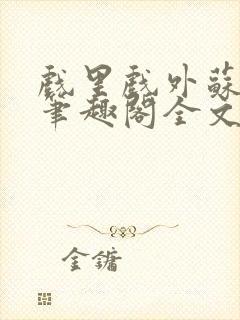 戲里戲外蘇
筆趣閣全文
金鏞